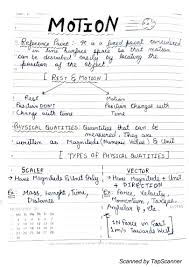 MOTION
Reference Point :- It is a fixed point considered
in line surface space so that motion
can be described easily by locating the
position of the object.
[ REST & MOTION ]
Rest
Motion
Position DON'T
Position Changes with
Change with time
Time
PHYSICAL QUANTITIES: Quantities that can be
measured. They are
written as Magnitude (Numeric value) & Unit
[ TYPES OF PHYSICAL QUANTITIES
SCALER
VECTOR
→ Have Magnitude & Unit Only
→ Have Magnitude + Unit
+ DIRECTION
Ex- Mass, Length, Time,
Ex- Force, Velocity,
Distance
Momentum,
Displacement, Torque,
Angular p, etc.
1N Force in East
1m/s Towards
Scanned by TapScanner